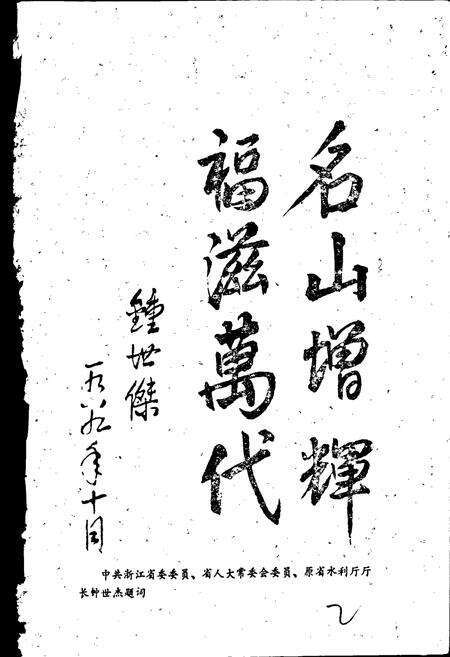 名山增輝
福滋萬代
鍾世傑
一九八九年十月
中共浙江省委委员、省人大常委会委员、原省水利厅厅
长钟世杰题词
2